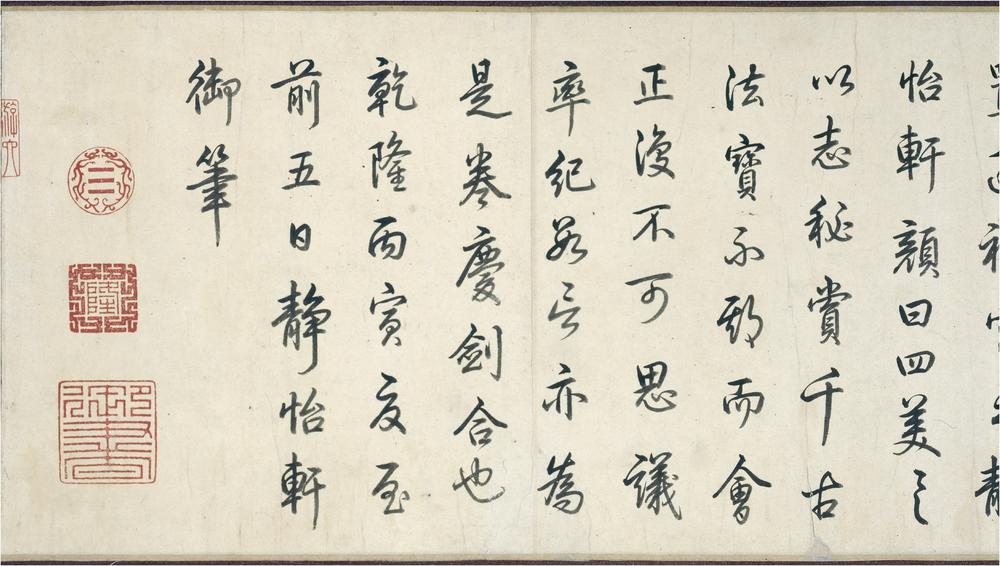 怡軒顏曰四美之
以志秘賞千古
法寶不期而會
正復不可思議
率紀數言亦為
是卷慶劍合也
乾隆丙寅夏至
前五日靜怡軒
御筆
乾隆